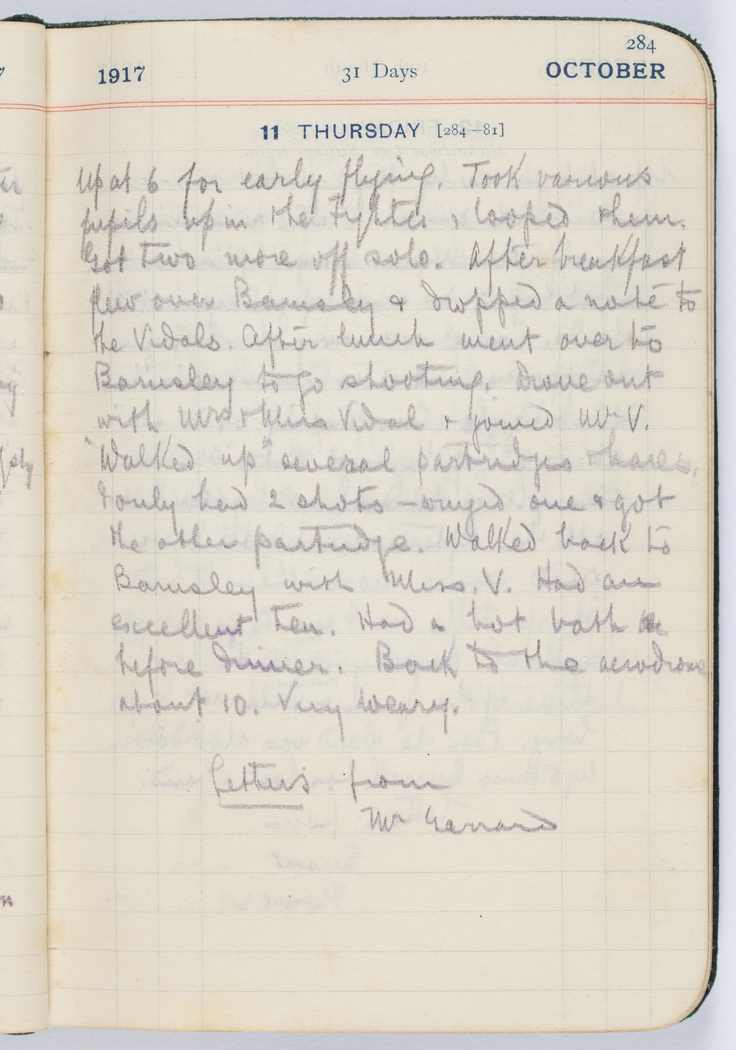 284
1917 31 Days OCTOBER
11 THURSDAY [284—81]
Up at 6 for early flying. Took various
pupils up in the Fighter & looped them.
Got two more off solo. After breakfast
flew over Barnsley & dropped a note to
the Vidals. After lunch went over to
Barnsley to go shooting. Drove out
with Mrs & Miss Vidal & joined Mr V.
"Walked up" several partridges & hares.
I only had 2 shots – winged one & got
the other partridge. Walked back to
Barnsley with Miss. V. Had an
excellent tea. Had a hot bath
before dinner. Back to the aerodrome
about 10. Very weary.
Letters from
Mr Garrard